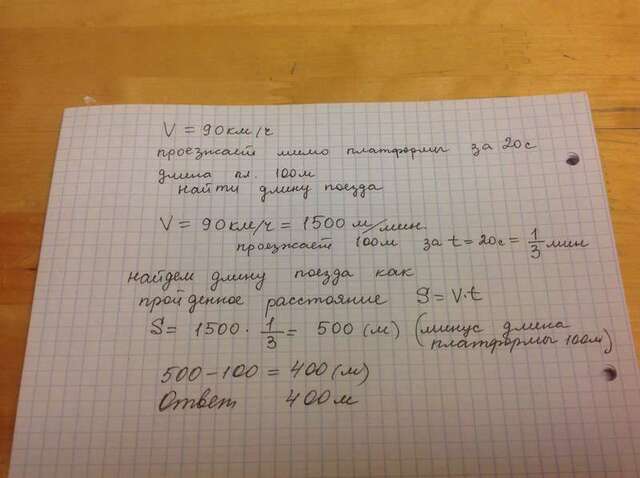 V = 90 км/ч
проезжает мимо платформы за 20с
длина пл. 100м
найти длину поезда
V = 90 км/ч = 1500 м/мин.
проезжает 100м за t = 20с = 1/3 мин
найдем длину поезда как
пройденное расстояние S = V·t
S = 1500 · 1/3 = 500 (м) (минус длина
платформы 100м)
500 – 100 = 400 (м)
Ответ 400 м